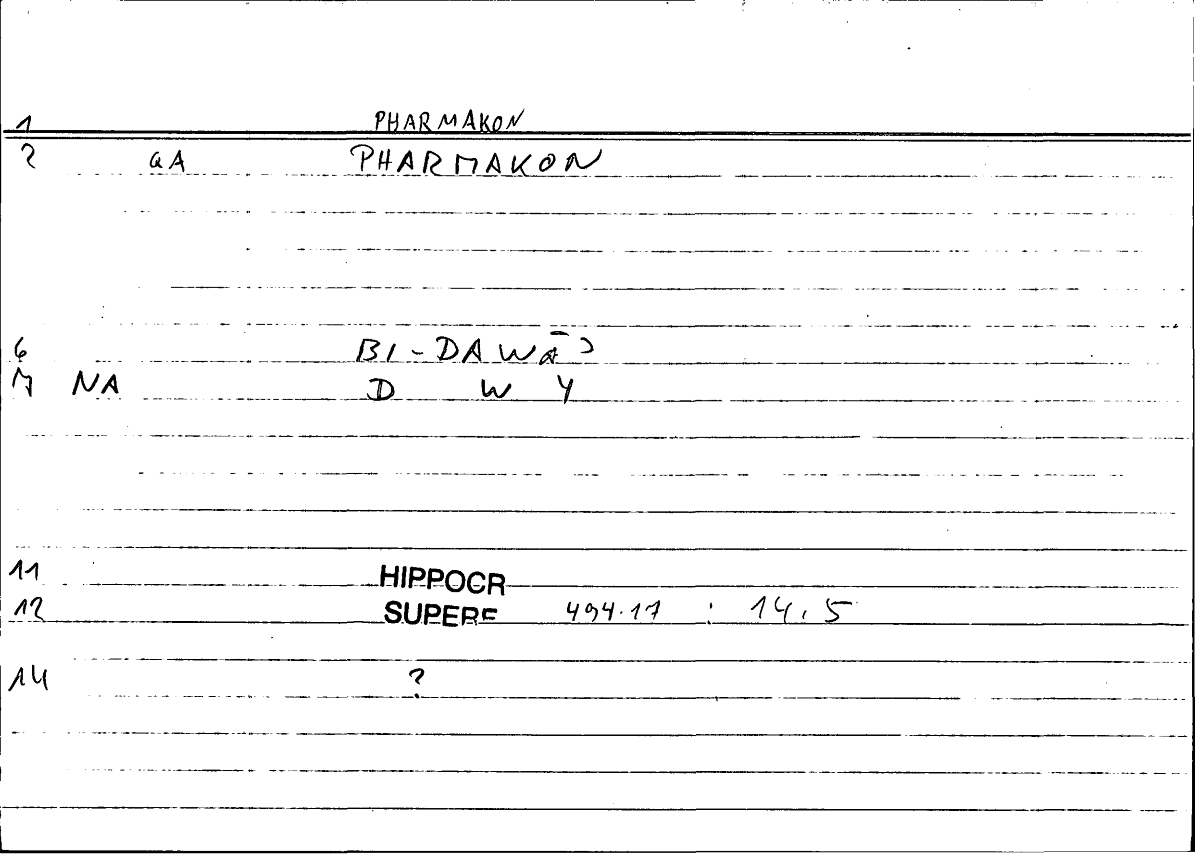 1 PHARMAKON
2 GA PHARMAKON
6 BI-DAWĀʾ
7 NA D W Y
11 HIPPOCR
12 SUPERF 494.17 : 14.5
14 ?